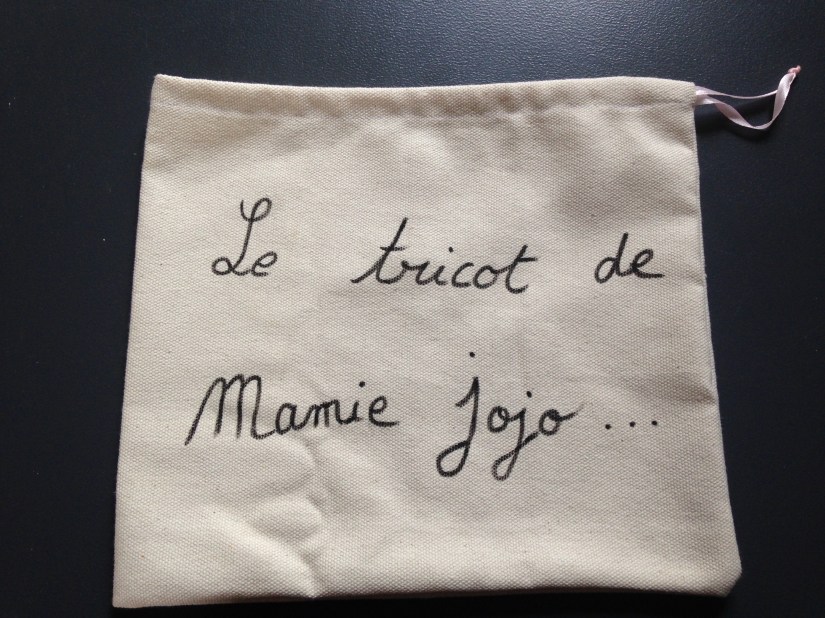 Le tricot de
Mamie jojo ...